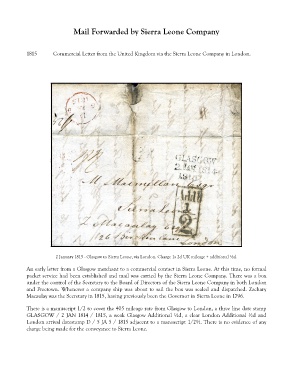 Mail Forwarded by Sierra Leone Company
1815 Commercial Letter from the United Kingdom via the Sierra Leone Company in London.
GLASGOW
2 JAN 1814
Addl
1/2
M. Macmillan Esqr
Sierra Leone
Z Macaulay
26 Birchin Lane
London
2 January 1815 - Glasgow to Sierra Leone, via London. Charge 1s 2d UK mileage + additional ½d.
An early letter from a Glasgow merchant to a commercial contact in Sierra Leone. At this time, no formal
packet service had been established and mail was carried by the Sierra Leone Company. There was a box
under the control of the Secretary to the Board of Directors of the Sierra Leone Company in both London
and Freetown. Whenever a company ship was about to sail the box was sealed and dispatched. Zachary
Macaulay was the Secretary in 1815, having previously been the Governor in Sierra Leone in 1796.
There is a manuscript 1/2 to cover the 405 mileage rate from Glasgow to London, a three line date stamp
GLASGOW / 2 JAN 1814 / 1815, a weak Glasgow Additional ½d, a clear London Additional ½d and
London arrival datestamp D / 5 JA 5 / 1815 adjacent to a manuscript 1/2½. There is no evidence of any
charge being made for the conveyance to Sierra Leone.